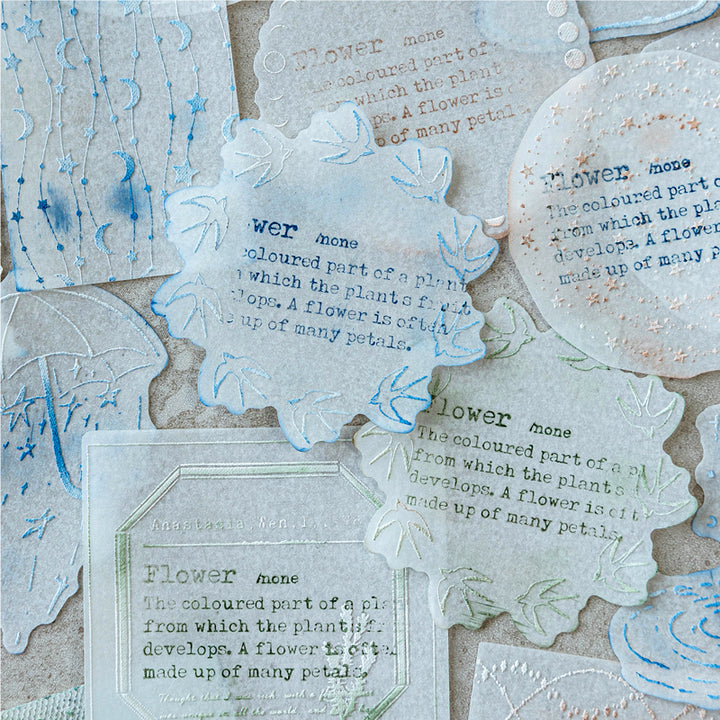 Flower /none
The coloured part of
from which the plant
develops. A flower is
up of many petals.
Flower /none
The coloured part of
from which the pla
develops. A flower
made up of many p
wer /none
coloured part of a plant
which the plant s fruit
lops. A flower is often
e up of many petals.
Flower /none
The coloured part of a pl
from which the plant s
develops. A flower is oft
made up of many petals.
Anastasia, Wen.
Flower /none
The coloured part of a pla
from which the plant s fr
develops. A flower is ofte
made up of many petals.
Thought that I was rich, with a flower